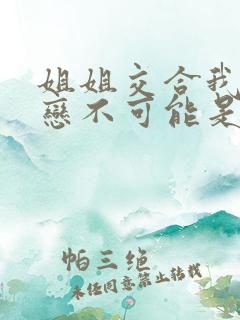 姐姐交合我
戀不可能是
帕三绝
未经同意禁止转载